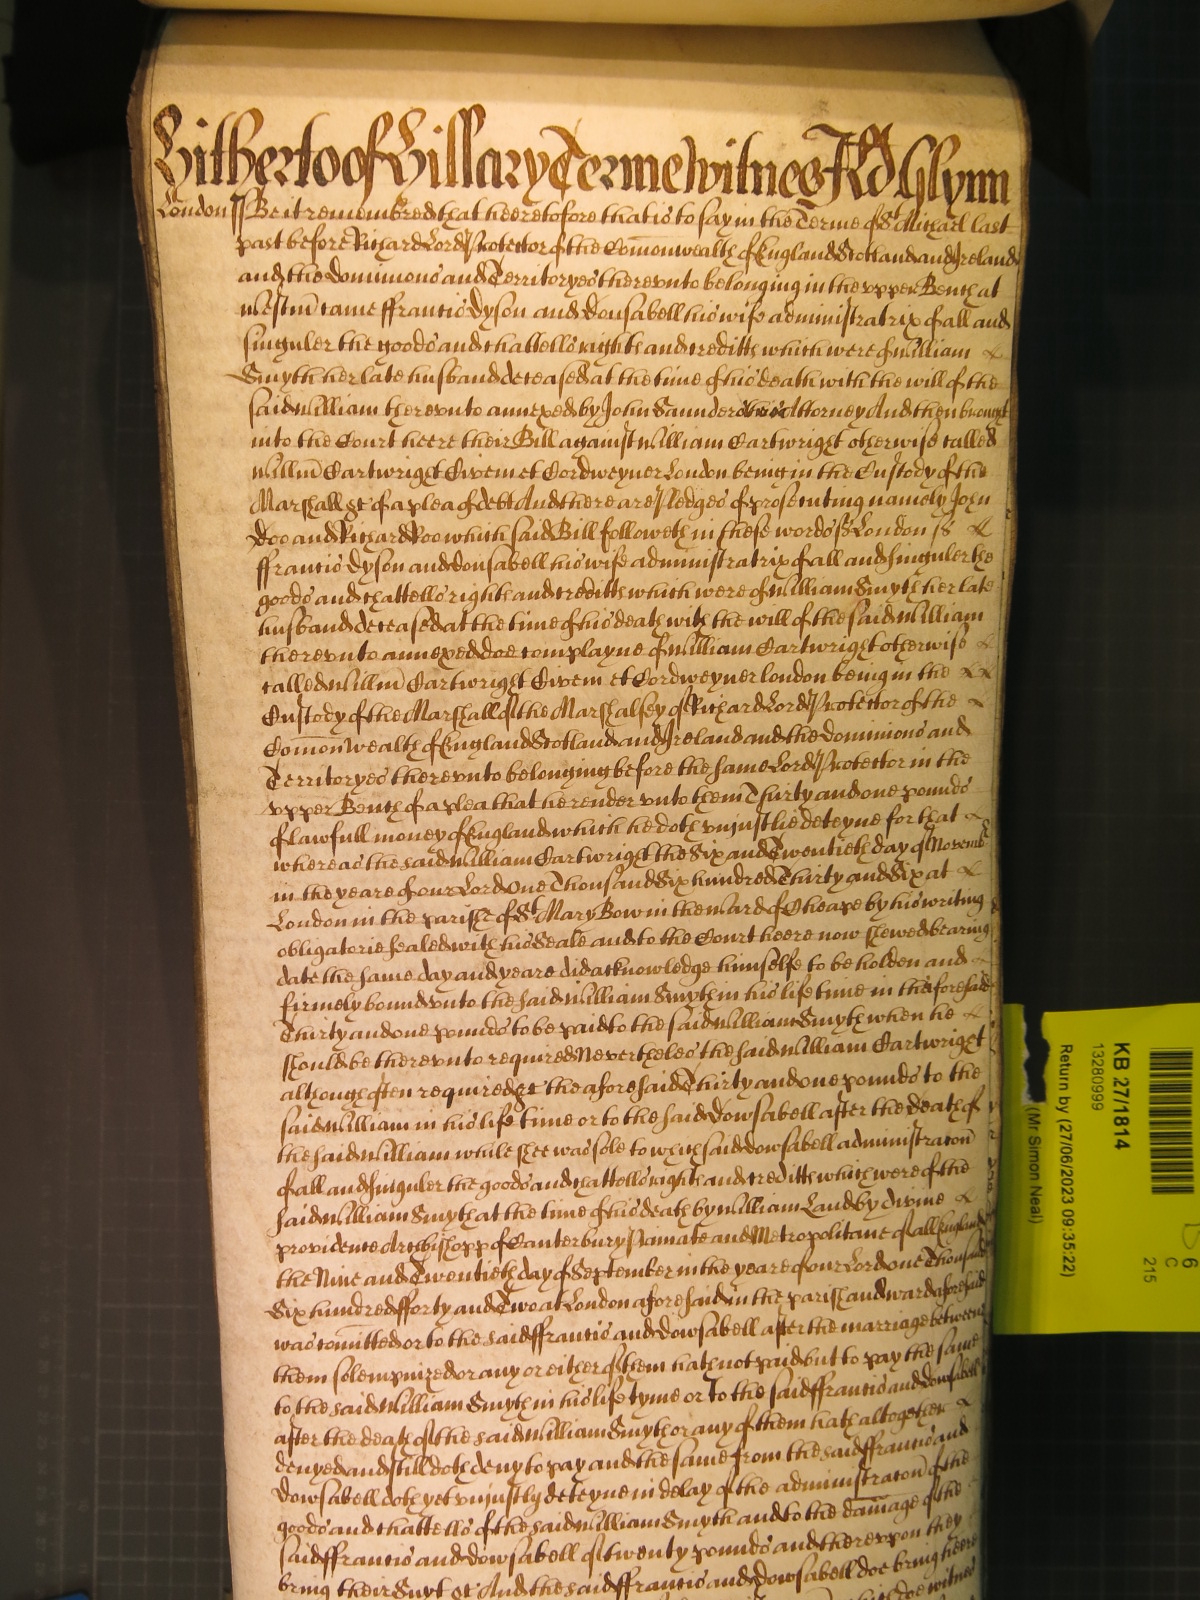 Hitherto of Hillary Terme Witnes Jo Glynn
London ss Be it remembred that heeretofore that is to say in the Terme of St Michael last
past before Richard Lord Protector of the Com̄onwealth of England Scotland and Ireland
and the dominions and Territoryes therevnto belonging in the vpper Bench at
Westm̄ came ffrancis Dyson and Dousabell his wife administratrix of all and
singuler the goods and chattells rights and creditts which were of William
Smyth her late husband deceased at the time of his death with the will of the
said William therevnto annexed by John Saunders their Attorney And then brought
into the Court heere their Bill against William Cartwright otherwise called
Willm̄ Cartwright Civem et Cordweyner London being in the Custody of the
Marshall &c of a plea of debt And there are Pledges of prosecuting namely John
Doo and Richard Roo which said Bill followeth in these words ss London ss
ffrancis Dyson and Dousabell his wife administratrix of all and singuler the
goods and chattells rights and creditts which were of William Smyth her late
husband deceased at the time of his death with the will of the said William
therevnto annexed doe complayne of William Cartwright otherwise
called Willm̄ Cartwright Civem et Cordweyner London being in the
Custody of the Marshall of the Marshalsey of Richard Lord Protector of the
Com̄on Wealth of England Scotland and Ireland and the Dominions and
Territoryes therevnto belonging before the same Lord Protector in the
vpper Bench of a plea that he render vnto them Thirty and one pounds
of lawfull money of England which he doth vnjustlie deteyne for that
whereas the said William Cartwright the Six and Twentieth day of Novemb
in the yeare of our Lord One Thousand Six hundred Thirty and Six at
London in the parish of St Mary Bow in the Ward of Cheape by his writing
obligatorie sealed with his Seale and to the Court heere now shewed bearing
date the same day and yeare did acknowledge himselfe to be holden and
firmely bound vnto the said William Smyth in his life time in the aforesaid
Thirty and one pounds to be paid to the said William Smyth when he
should be therevnto required Neverthelesse the said William Cartwright
although often required &c the aforesaid Thirty and one pounds to the
said William in his life time or to the said Dowsabell after the death of
the said William while shee was sole to which said Dowsabell administracon̄
of all and singuler the goods and chattells rights and creditts which were of the
said William Smyth at the time of his death by William Laud by divine
providence Archbishopp of Canterbury Primate and Metropolitane of all England
the Nine and Twentieth day of September in the yeare of our Lord one Thousand
Six hundred fforty and Two at London aforesaid in the parish and ward aforesaid
was com̄itted or to the said ffrancis and Dowsabell after the marriage betweene
them solempnized or any or either of them hath not paid but to pay the same
to the said William Smyth in his life tyme or to the said ffrancis and Dowsabell
after the death of the said William Smyth or any of them hath altogether
denyed and still doth deny to pay and the same from the said ffrancis and
Dowsabell doth yet vnjustly deteyne in delay of the administracon̄ of the
goods and chattells of the said William Smyth and to the damage of the
said ffrancis and Dowsabell of twenty pounds and therevpon they
bring their Suyt &c And the said ffrancis and Dowsabell doe bring heere
doe witnes
KB 27/1814
13280999
Return by (27/06/2023 09:35:22)
(Mr Simon Neal)
6
C
215